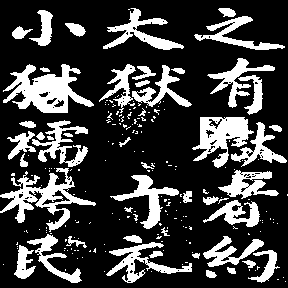 之有獄者約
大獄衣
小獄襦袴民